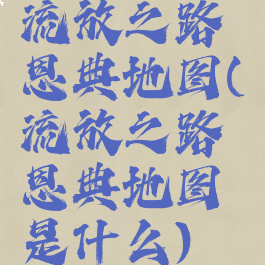 流放之路
恩典地图(
流放之路
恩典地图
是什么)